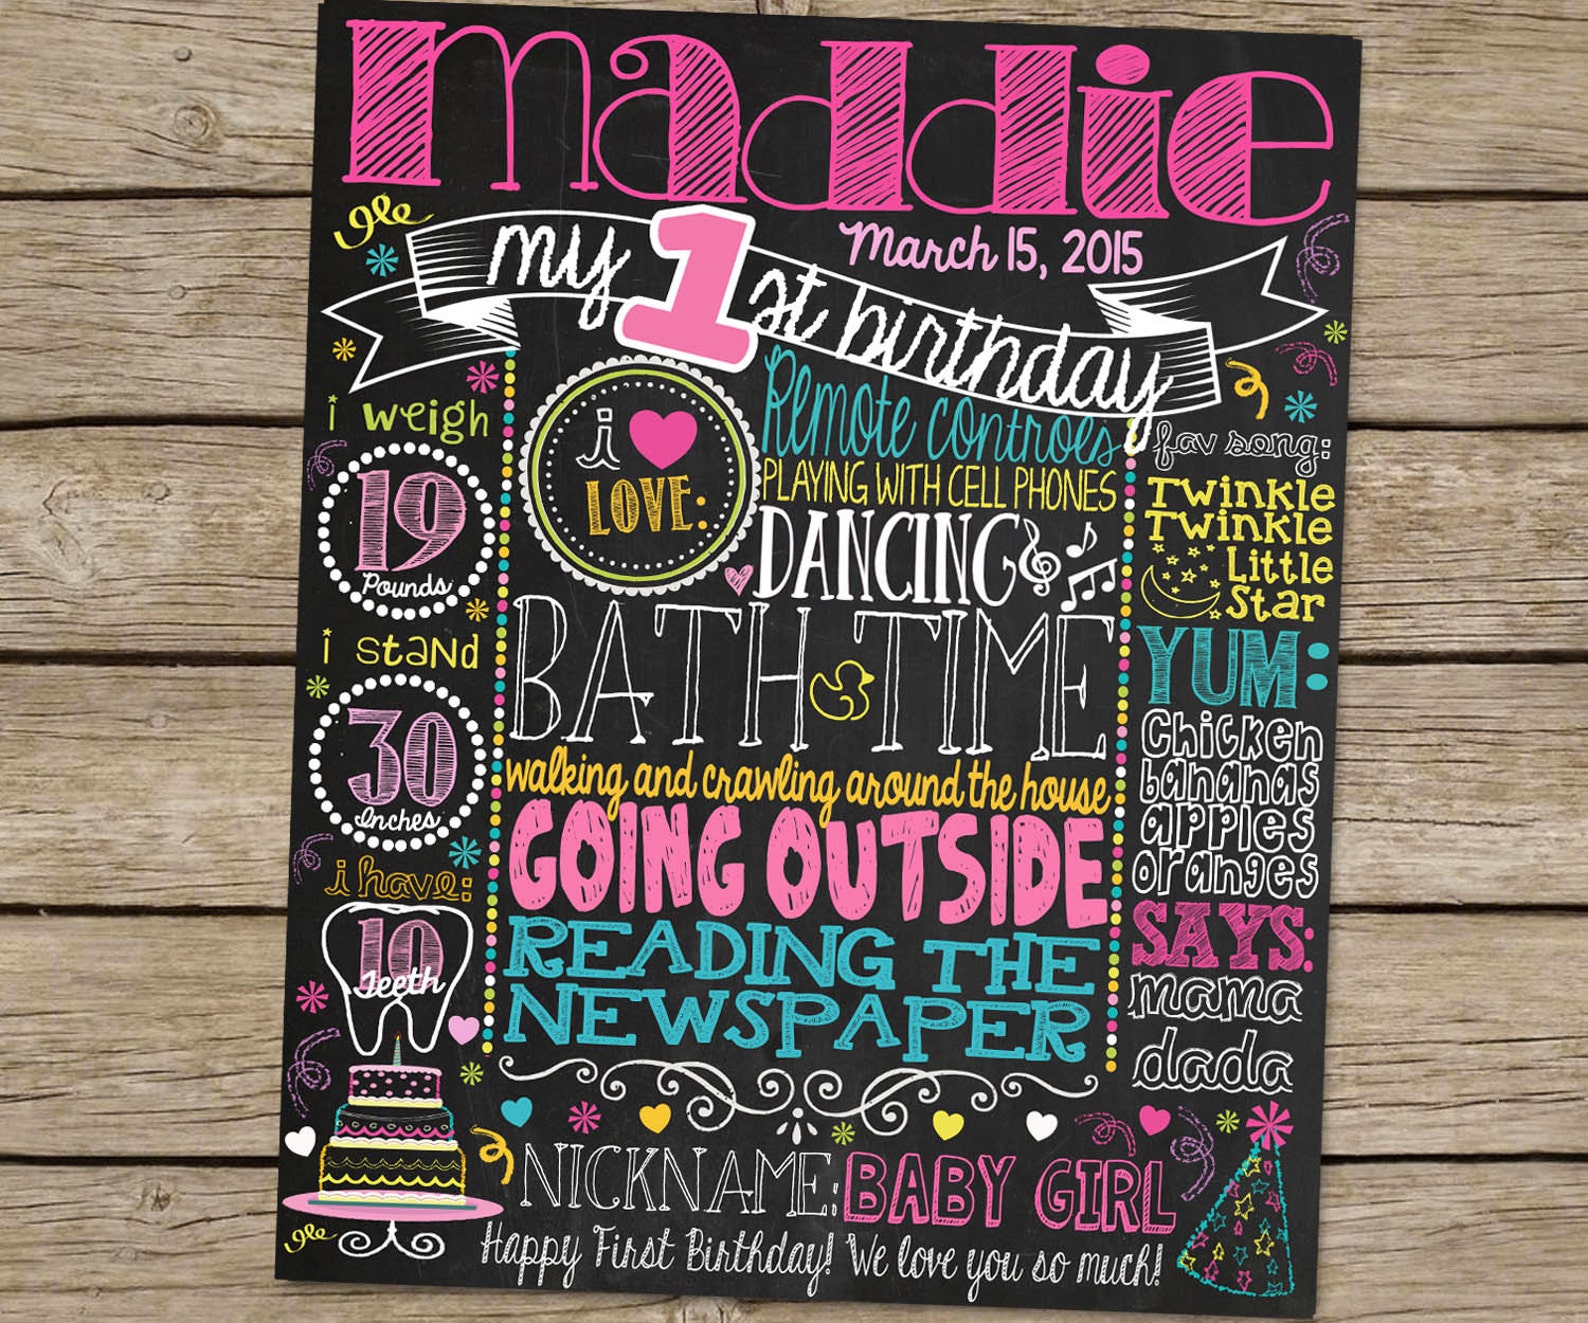 maddie
March 15, 2015
my 1st birthday
i weigh
19
Pounds
i stand
30
Inches
i have:
10
Teeth
i ♥
LOVE:
Remote controls
PLAYING WITH CELL PHONES
DANCING
BATH TIME
walking and crawling around the house
GOING OUTSIDE
READING THE
NEWSPAPER
fav song:
Twinkle
Twinkle
Little
Star
YUM:
Chicken
bananas
apples
oranges
SAYS:
mama
dada
NICKNAME: BABY GIRL
Happy First Birthday! We love you so much!